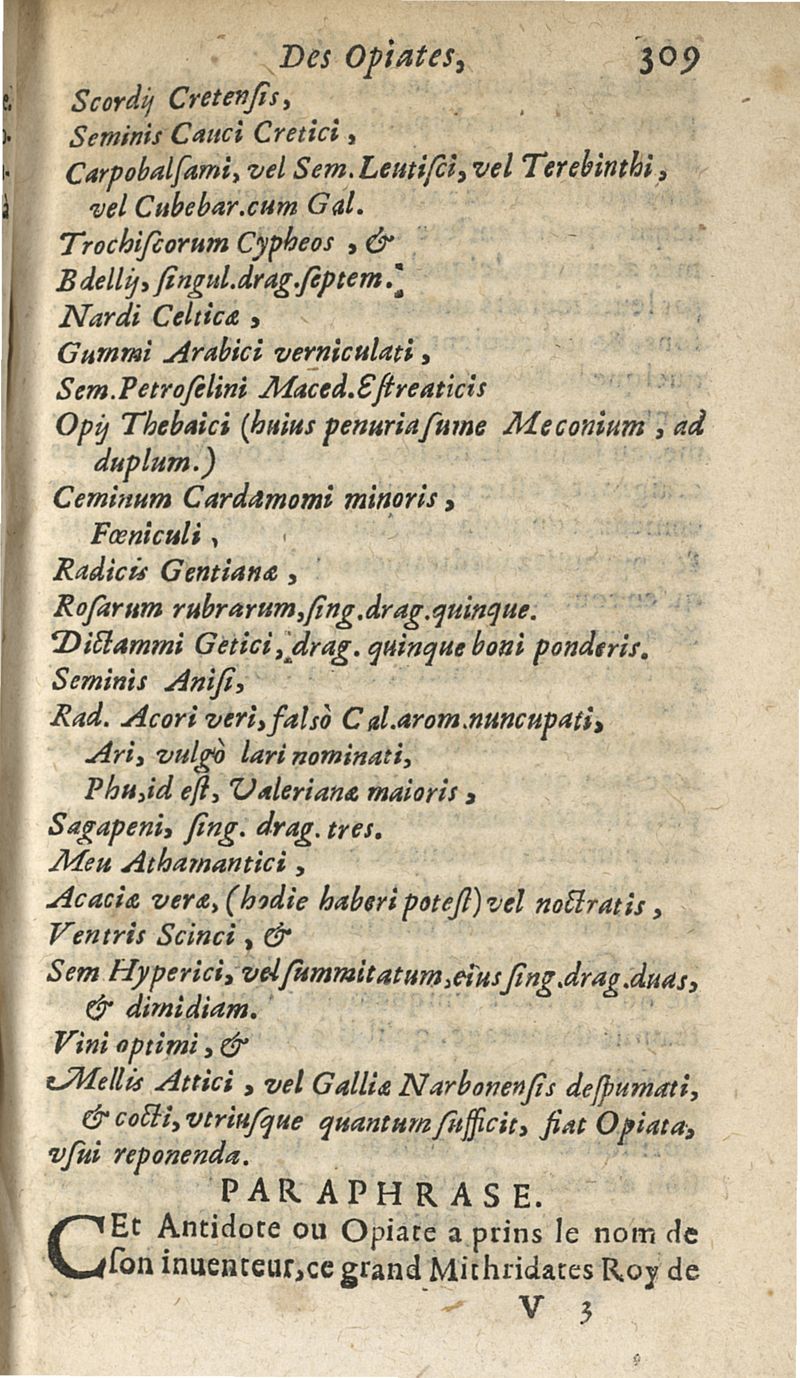 Des Opiates, 309
Scordij Cretenſis,
Seminis Cauci Cretici,
Carpobalſami, vel Sem. Leutiſci, vel Terebinthi,
vel Cubebar. cum Gal.
Trochiſcorum Cypheos, &
Bdellij, ſingul. drag. ſeptem.
Nardi Celticæ,
Gummi Arabici verniculati,
Sem. Petroſelini Maced. Eſtreaticis
Opij Thebaici (huius penuria ſume Meconium, ad
duplum.)
Ceminum Cardamomi minoris,
Fœniculi,
Radicis Gentianæ,
Roſarum rubrarum, ſing. drag. quinque.
Dictammi Getici, drag. quinque boni ponderis.
Seminis Aniſi,
Rad. Acori veri, falsò Cal. arom. nuncupati,
Ari, vulgò Iari nominati,
Phu, id eſt, Valerianæ maioris,
Sagapeni, ſing. drag. tres.
Meu Athamantici,
Acaciæ veræ, (hodie haberi poteſt) vel noctratis,
Ventris Scinci, &
Sem Hyperici, vel ſummitatum, eius ſing. drag. duas,
& dimidiam.
Vini optimi, &
Mellis Attici, vel Galliæ Narbonenſis deſpumati,
& cocti, vtriuſque quantum ſufficit, fiat Opiata,
vſui reponenda.
PARAPHRASE.
CEt Antidote ou Opiate a prins le nom de
ſon inuenteur, ce grand Mithridates Roy de
V 3